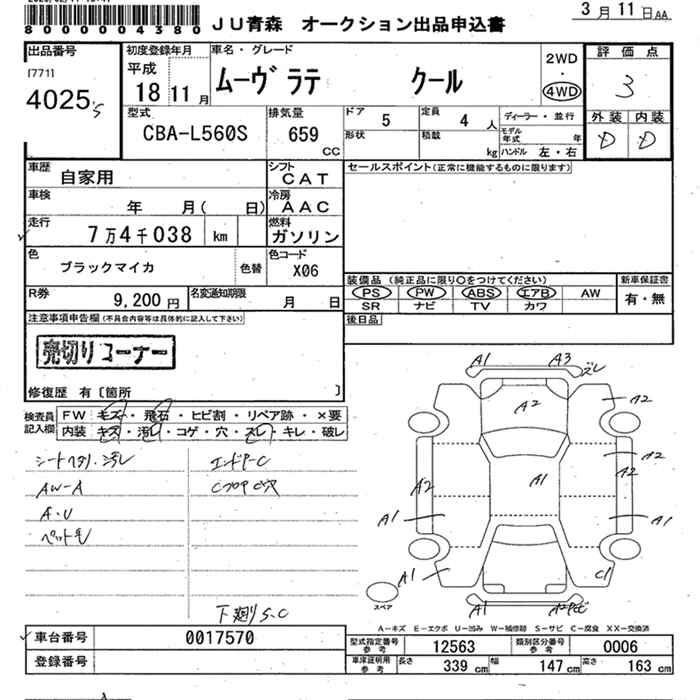 800000004380
JU青森 オークション出品申込書
3月11日AA
出品番号
[771]
4025
初度登録年月
平成
18 11月
車名・グレード
ムーヴ ラテ クール
2WD
・
4WD
評価点
3
外装 内装
D D
型式
CBA-L560S
排気量
659
CC
ドア 5
定員 4 人
ディーラー・並行
形状
積載 kg
モデル年式 年
ハンドル 左・右
車歴
自家用
シフト
CAT
セールスポイント(正常に機能するものに限ります)
車検
年 月( 日)
冷房
AAC
走行
7万4千038 km
燃料
ガソリン
色
ブラックマイカ
色替
色コード
X06
装備品(純正品に限り○をつけてください)
新車保証書
PS PW ABS エアB AW
有・無
SR ナビ TV カワ
R券
9,200円
名変通知期限
月 日
後日品
注意事項申告欄(不具合内容等は具体的に記入して下さい)
売切りコーナー
修復歴 有〔箇所 〕
検査員記入欄
FW キズ・飛石・ヒビ割・リペア跡・×要
内装 キズ・汚レ・コゲ・穴・スレ・キレ・破レ
シートヘタリ・汚レ
AW-A
A・U
ペット毛
下廻りS・C
A1 A3 ズレ
A2
A2
A1
A2
A2
A2
A1
A1
A1
C1
A1
スペア
A-キズ E-エクボ U-凹み W-補修跡 S-サビ C-腐食 XX-交換済
車台番号
0017570
登録番号
型式指定番号 参考
12563
類別区分番号 参考
0006
車庫証明用 参考
長さ 339 cm
幅 147 cm
高さ 163 cm